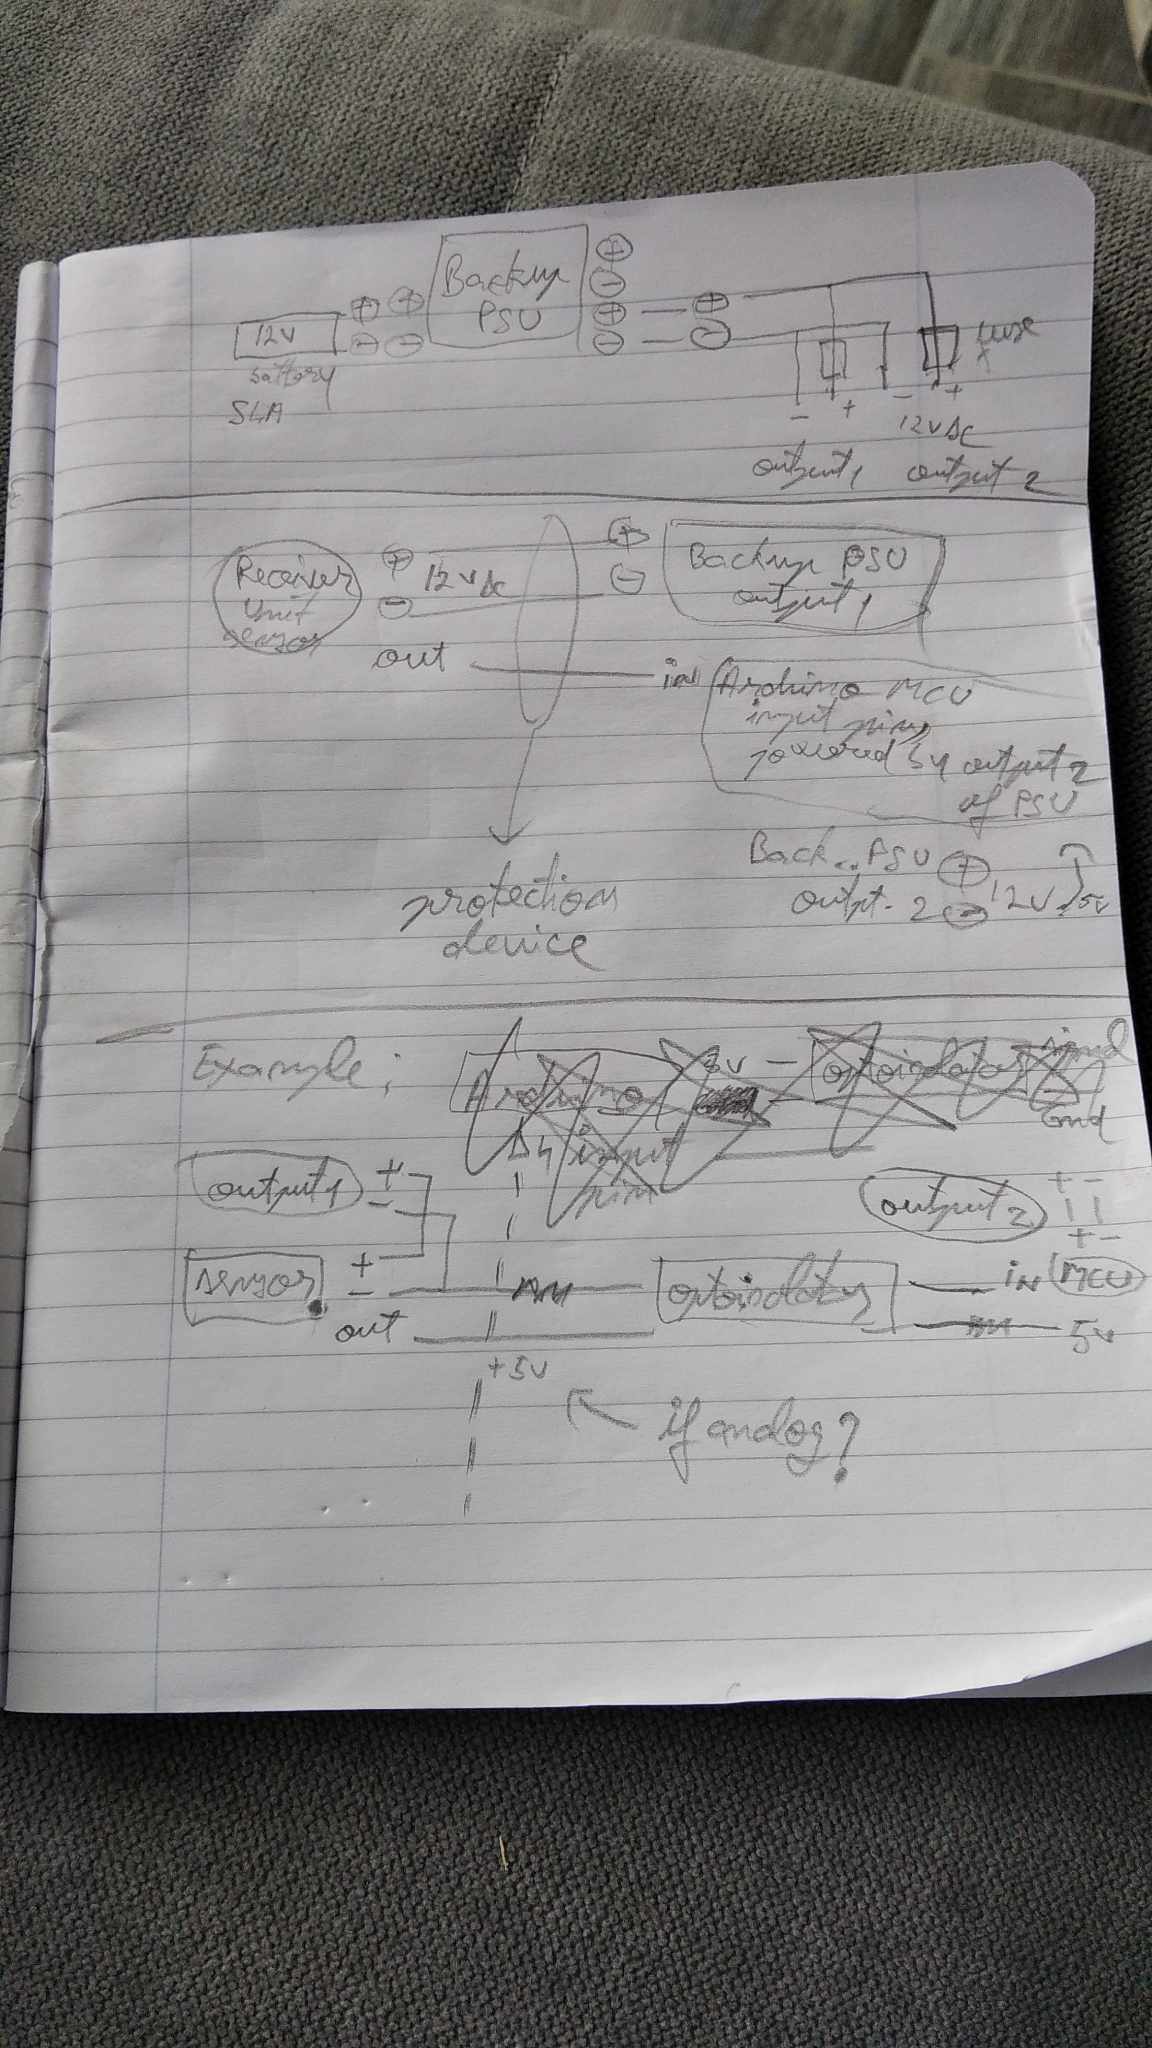 Backup
PSU
+
-
+ - +
- - -
12V + +
- -
battery
SLA
fuse
- + - +
12V DC
output 1 output 2
Receiver
unit
sensor
+ 12V DC +
- -
Backup PSU
output 1
out in
Arduino MCU
input pin,
powered by output 2
of PSU
Back.. PSU +
output. 2 - 12V 5V
protection
device
Example:
Arduino 5V optoisolator
Gnd
input
pin
output 1 +
-
output 2 + -
+ -
sensor +
-
out
optoisolator
in MCU
5V
+5V
if analog?